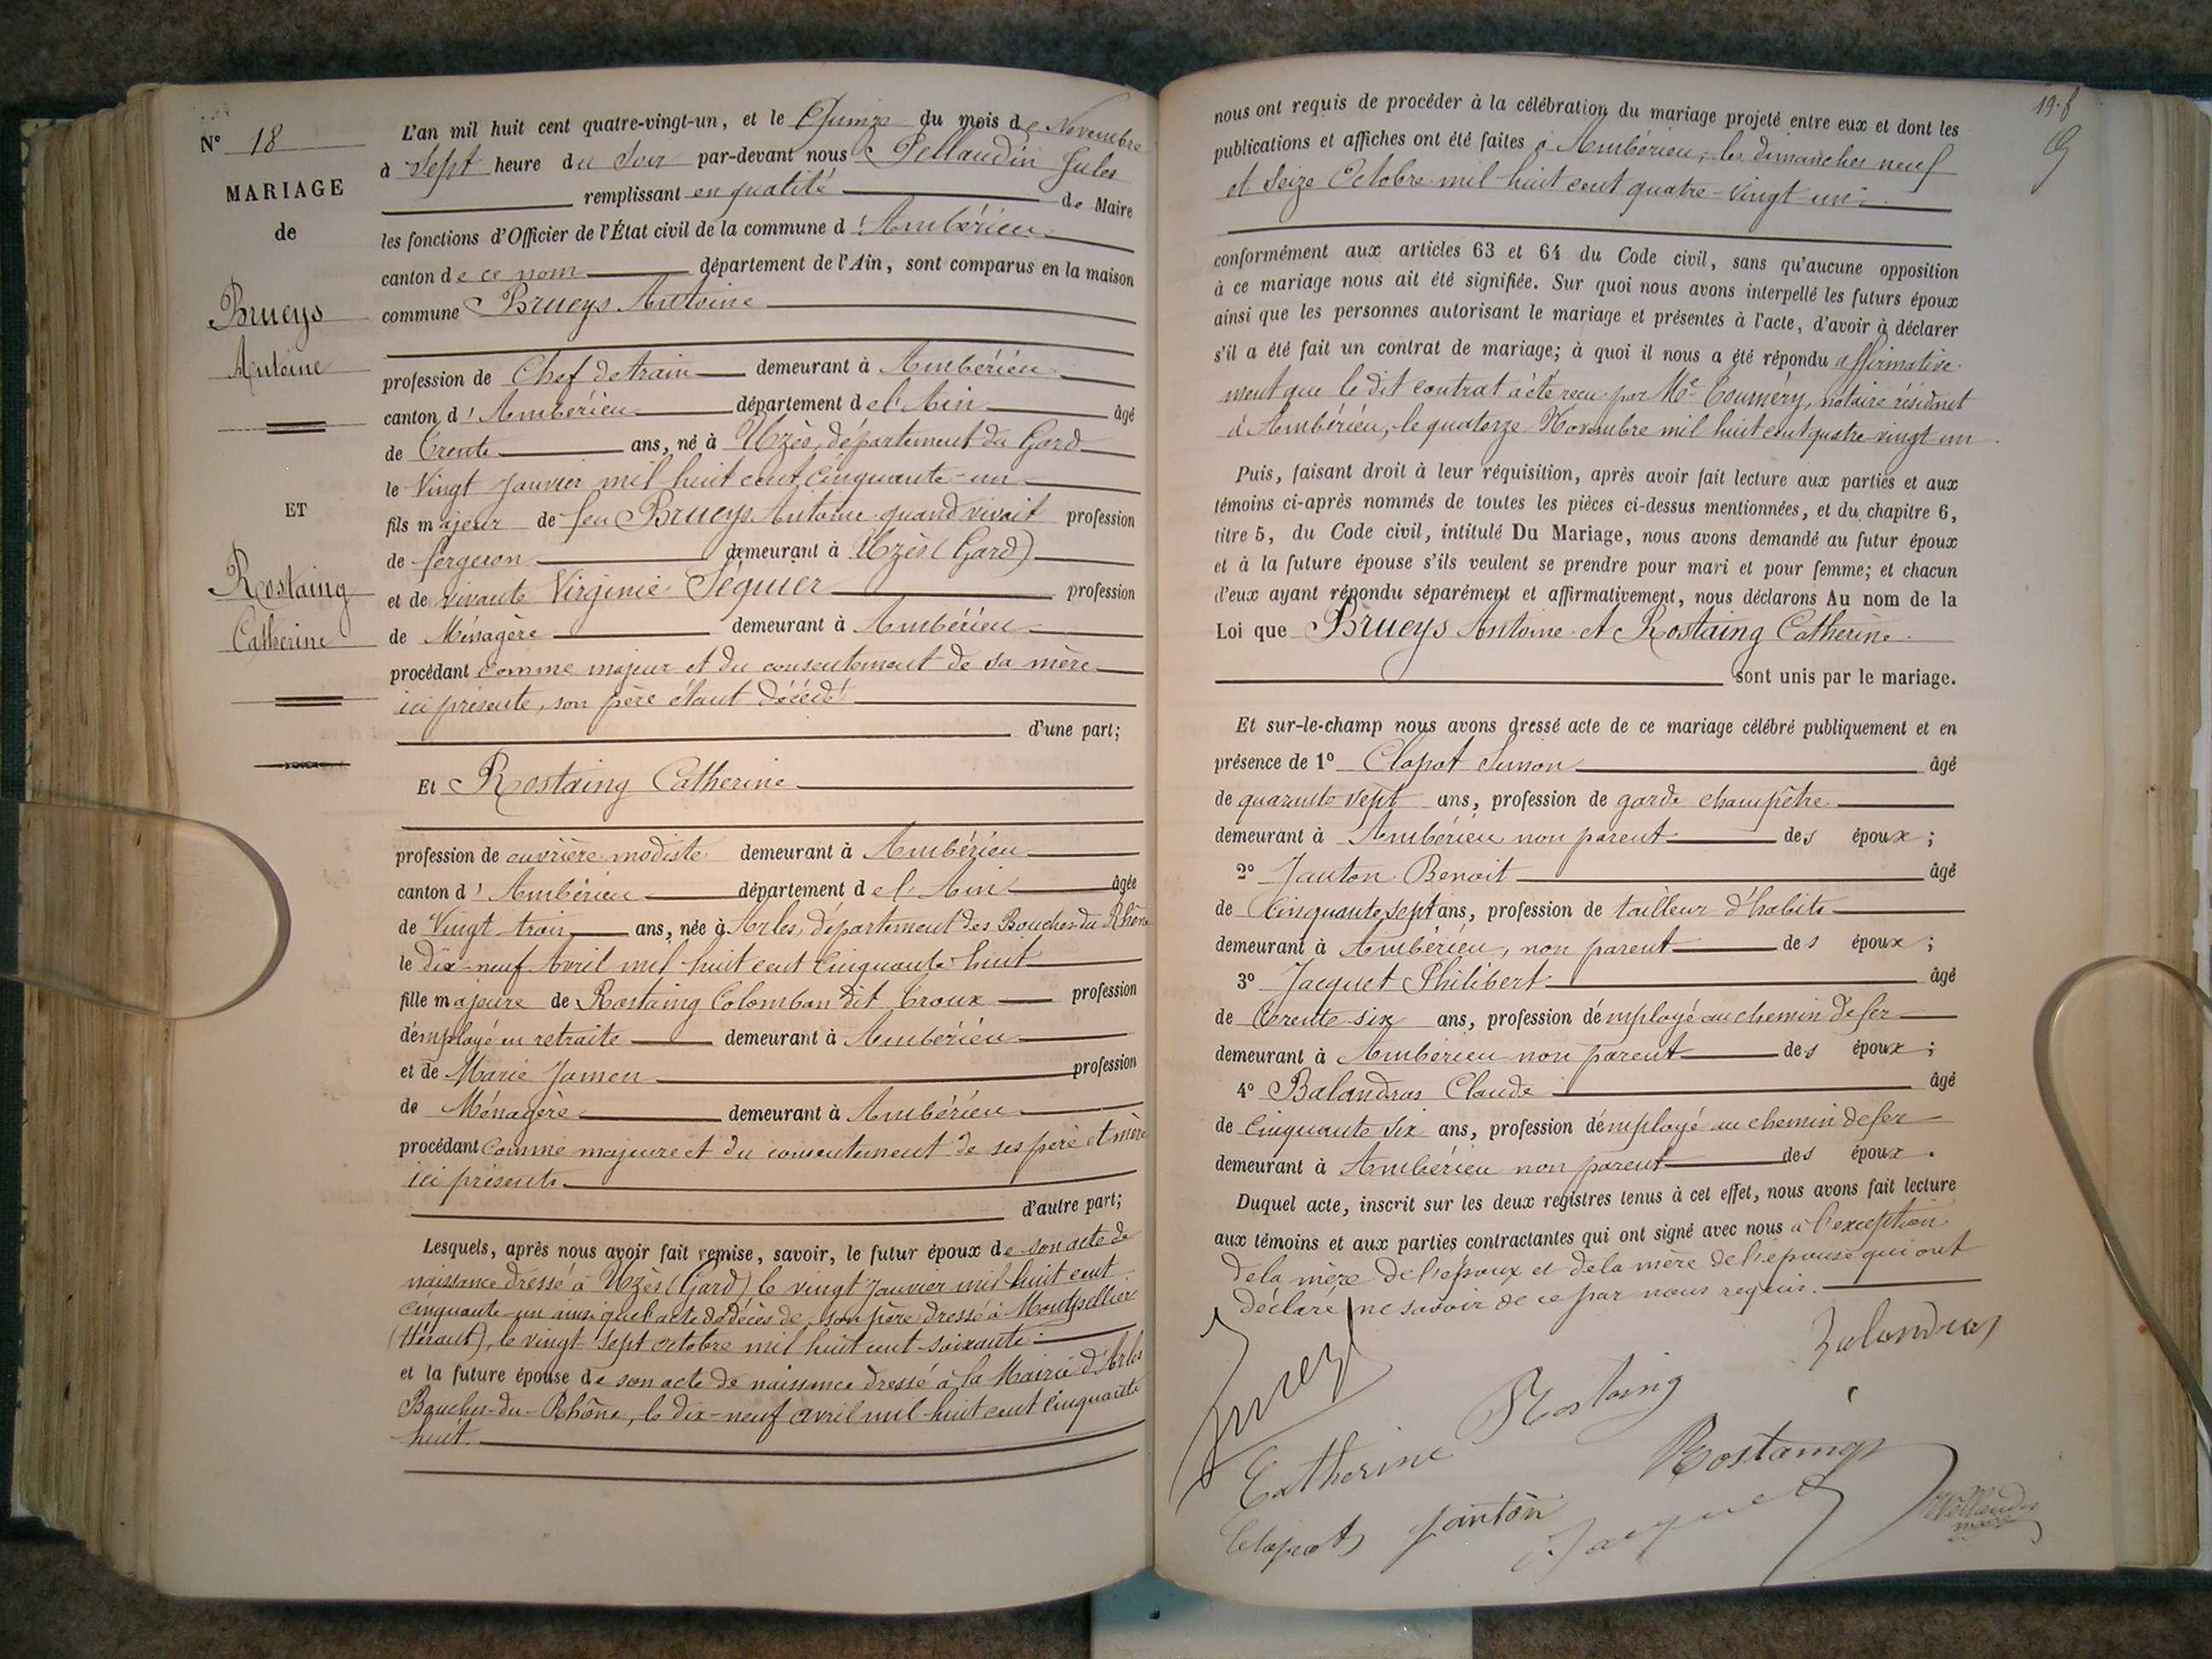 N° 18
MARIAGE
de
Brueys
Antoine
ET
Rostaing
Catherine
L'an mil huit cent quatre-vingt-un, et le Quinze du mois de Novembre
à Sept heure du Soir par-devant nous Pellaudin Jules
remplissant en qualité de Maire
les fonctions d'Officier de l'État civil de la commune d'Ambérieu
canton de ce nom département de l'Ain, sont comparus en la maison
commune Brueys Antoine
profession de Chef de train demeurant à Ambérieu
canton d'Ambérieu département de l'Ain âgé
de Trente ans, né à Uzès, département du Gard
le Vingt Janvier mil huit cent cinquante-un
fils majeur de feu Brueys Antoine quand vivait profession
de forgeron demeurant à Uzès (Gard)
et de vivante Virginie Séquier profession
de Ménagère demeurant à Ambérieu
procédant comme majeur et du consentement de sa mère
ici présente, son père étant décédé
d'une part;
Et Rostaing Catherine
profession de ouvrière modiste demeurant à Ambérieu
canton d'Ambérieu département de l'Ain âgée
de Vingt trois ans, née à Arles, département des Bouches du Rhône
le Dix-neuf Avril mil huit cent cinquante huit
fille majeure de Rostaing Colomban dit Croux profession
d'employé en retraite demeurant à Ambérieu
et de Marie Jamen profession
de Ménagère demeurant à Ambérieu
procédant comme majeure et du consentement de ses père et mère
ici présents
d'autre part;
Lesquels, après nous avoir fait remise, savoir, le futur époux de son acte de
naissance dressé à Uzès (Gard) le vingt Janvier mil huit cent
cinquante-un ainsi que l'acte de décès de son père dressé à Montpellier
(Hérault), le vingt sept octobre mil huit cent soixante
et la future épouse de son acte de naissance dressé à la Mairie d'Arles
Bouches-du-Rhône, le dix-neuf avril mil huit cent cinquante
huit.
19.
nous ont requis de procéder à la célébration du mariage projeté entre eux et dont les
publications et affiches ont été faites à Ambérieu, les dimanches neuf
et Seize Octobre mil huit cent quatre-vingt-un
conformément aux articles 63 et 64 du Code civil, sans qu'aucune opposition
à ce mariage nous ait été signifiée. Sur quoi nous avons interpellé les futurs époux
ainsi que les personnes autorisant le mariage et présentes à l'acte, d'avoir à déclarer
s'il a été fait un contrat de mariage; à quoi il nous a été répondu affirmative-
ment que le dit contrat a été reçu par Me Couméry, notaire résidant
à Ambérieu, le quatorze Novembre mil huit cent quatre vingt un.
Puis, faisant droit à leur réquisition, après avoir fait lecture aux parties et aux
témoins ci-après nommés de toutes les pièces ci-dessus mentionnées, et du chapitre 6,
titre 5, du Code civil, intitulé Du Mariage, nous avons demandé au futur époux
et à la future épouse s'ils veulent se prendre pour mari et pour femme; et chacun
d'eux ayant répondu séparément et affirmativement, nous déclarons Au nom de la
Loi que Brueys Antoine et Rostaing Catherine
sont unis par le mariage.
Et sur-le-champ nous avons dressé acte de ce mariage célébré publiquement et en
présence de 1° Clapot Simon âgé
de quarante sept ans, profession de garde champêtre
demeurant à Ambérieu non parent des époux;
2° Janton Benoit âgé
de Cinquante sept ans, profession de tailleur d'habits
demeurant à Ambérieu, non parent des époux;
3° Jacquet Philibert âgé
de Trente-six ans, profession d'employé au chemin de fer
demeurant à Ambérieu non parent des époux;
4° Balandras Claude âgé
de Cinquante six ans, profession d'employé au chemin de fer
demeurant à Ambérieu non parent des époux.
Duquel acte, inscrit sur les deux registres tenus à cet effet, nous avons fait lecture
aux témoins et aux parties contractantes qui ont signé avec nous à l'exception
de la mère de l'époux et de la mère de l'épouse qui ont
déclaré ne savoir de ce par nous requis.
Balandras
Rostaing
Catherine
Rostaing
Clapot
Janton
Jacquet